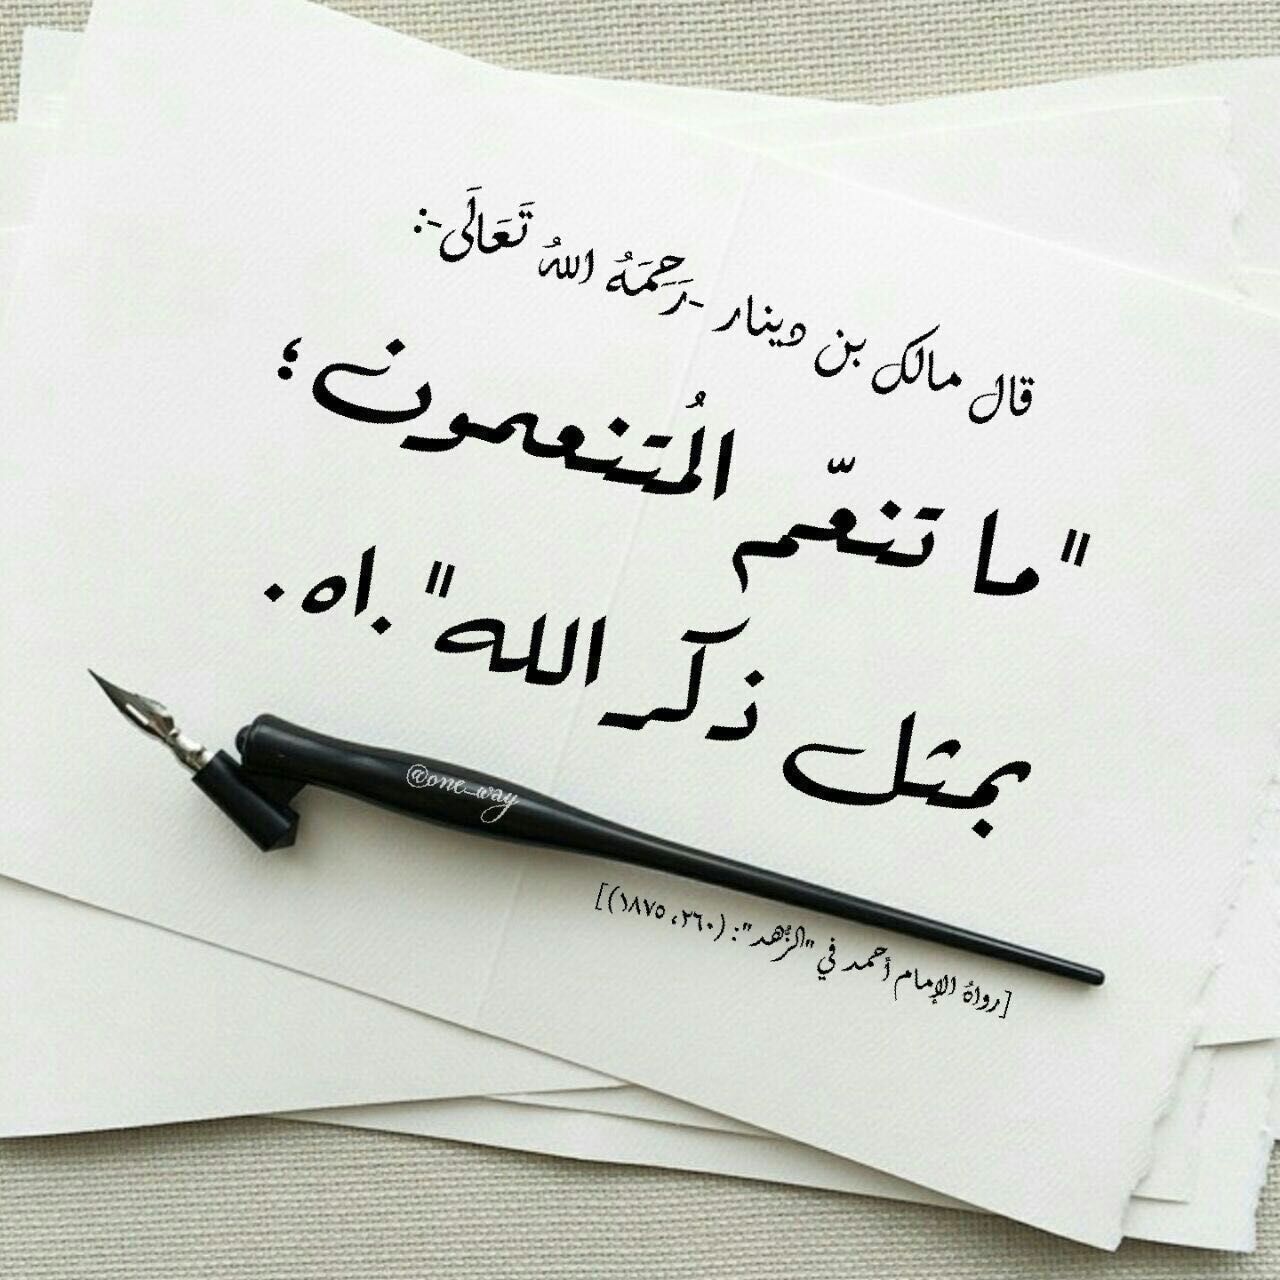 قال مالك بن دينار -رَحِمَهُ اللهُ تَعَالَى-:
"ما تنعّم المُتنعمون؛
بمثل ذكر الله". اه.
@one_way
[رواهُ الإمام أحمد في "الزُّهد": (٢٦٠، ١٨٧٥)]